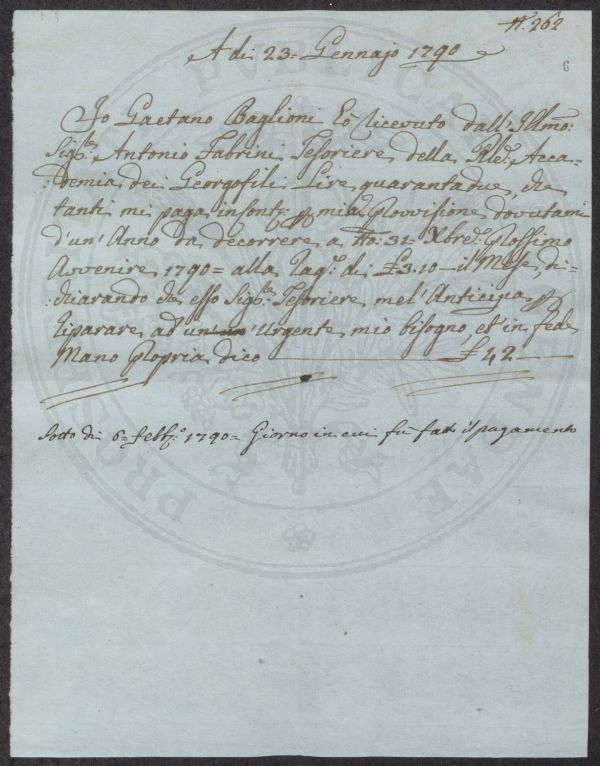 N. 262
A di 23= Gennajo 1790
6
Io Gaetano Baglioni hò ricevuto dall: Illmo:
Sigre. Antonio Fabrini Tesoriere della Rle. Acca=
=demia dei Georgofili Lire quarantadue, che
tanti mi paga in mia Provvisione dovutami
d'un' Anno da decorrere a tto. 31= Xbre. Prossimo
Avvenire 1790= alla Rag.e di £3.10— il Mese, di=
=chiarando che esso Sigre. Tesoriere me l'Anticipa
riparare ad un Urgente mio bisogno, et in fede
Mano Propria dico £ 42—
Sotto di 6= Febb.o 1790= Giorno in cui fù fatto il pagamento
PUBLICAE
PROSPERITATI